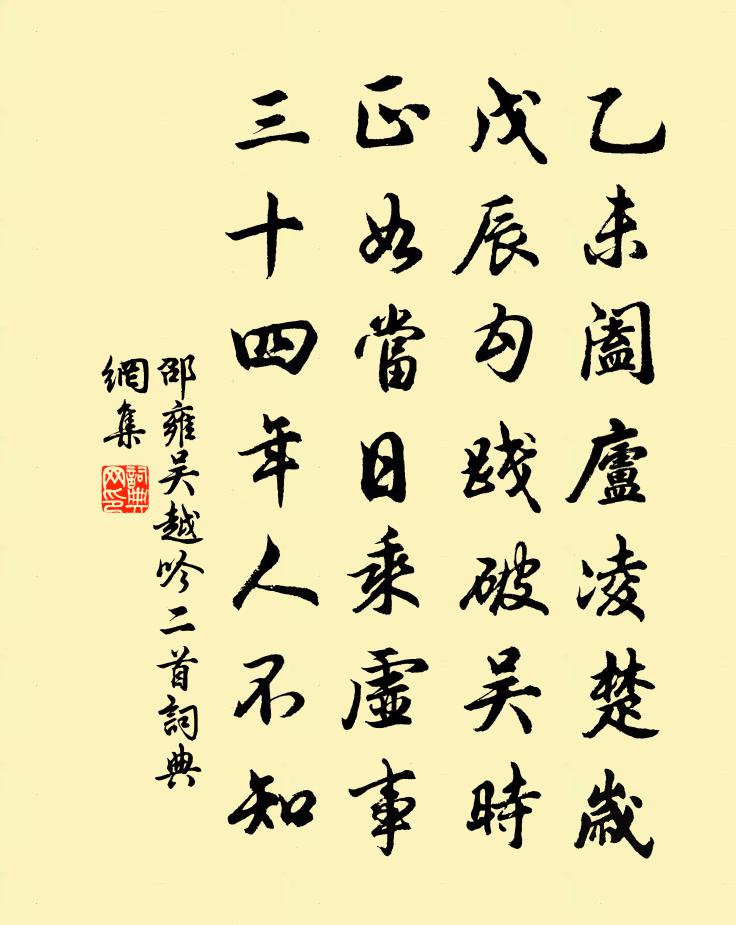 乙未闔廬凌楚歲
戊辰勾踐破吴時
正如當日乘虛事
三十四年人不知
邵雍吴越吟二首詞典
網集
詞典網印